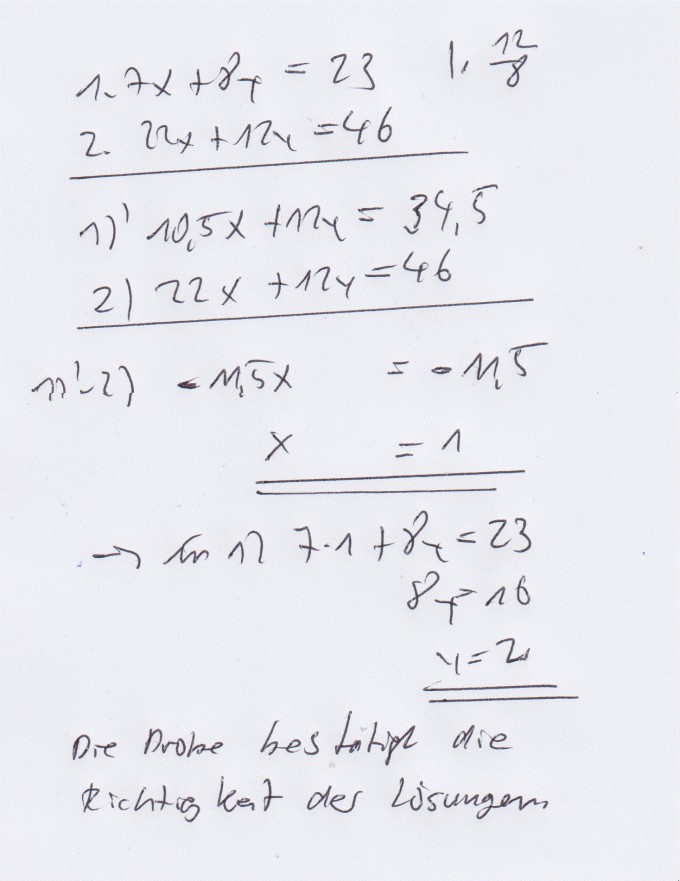 1. 7x + 8y = 23 | · 12/8
2. 22x + 12y = 46
1)' 10,5x + 12y = 34,5
2) 22x + 12y = 46
1)'-2) -11,5x = -11,5
x = 1
→ in 1) 7·1 + 8y = 23
8y = 16
y = 2
Die Probe bestätigt die
Richtigkeit der Lösungen